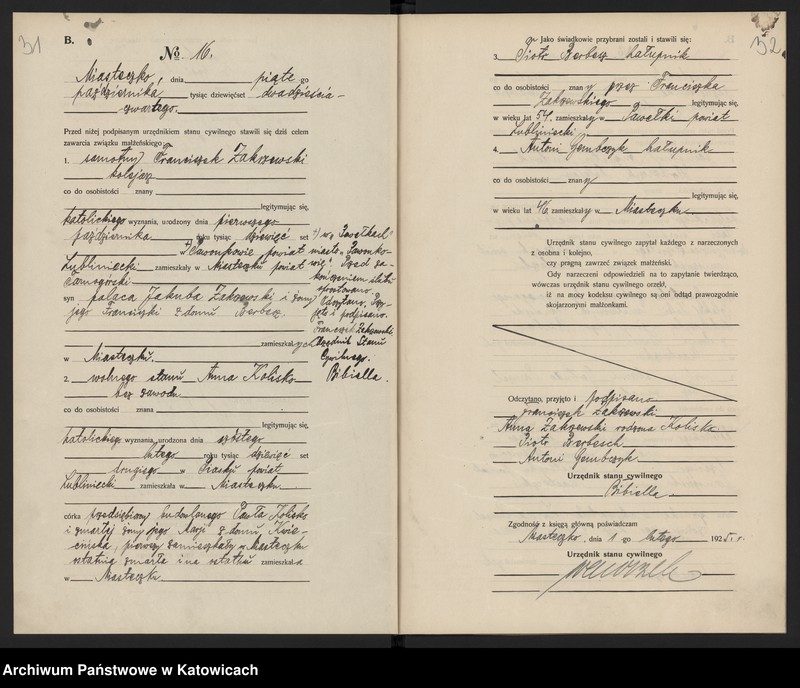 31
B.
No 16.
Miasteczko, dnia piąte go
października tysiąc dziewięćset dwadzieścia-
czwartego.
Przed niżej podpisanym urzędnikiem stanu cywilnego stawili się dziś celem
zawarcia związku małżeńskiego
1. samotny Franciszek Zakrzewski
kolejarz
co do osobistości znany
legitymując się,
katolickiego wyznania, urodzony dnia pierwszego
października roku tysiąc dziewięć set
w powiat
Lubliniecki zamieszkały w Miasteczku powiat
Tarnogórski
syn palacza Jakuba Zakrzewski i żony
jego Franciszki z domu Berbesz
zamieszkałych
w Miasteczku.
w Pawełkach
miasto
Przed za-
kończeniem aktu
sprostowano.
Odczytano, przy-
jęto i podpisano.
Franciszek Zakrzewski
Urzędnik Stanu
Cywilnego.
Bibiella.
2. wolnego stanu Anna Kolisko
bez zawodu
co do osobistości znana
legitymując się,
katolickiego wyznania, urodzona dnia szóstego
lutego roku tysiąc dziewięć set
drugiego w Piasku powiat
Lubliniecki zamieszkała w Miasteczku
córka przedsiębiorcy budowlanego Pawła Kolisko
i zmarłej żony jego Marji z domu Kwie-
cińska, pierwszy zamieszkały w Miasteczku
ostatnia zmarła i na ostatku zamieszkała
w Miasteczku
32
Jako świadkowie przybrani zostali i stawili się:
3. Piotr Berbesz chałupnik
co do osobistości znany przez Franciszka
Zakrzewskiego legitymując się,
w wieku lat 54, zamieszkały w Pawełki powiat
Lubliniecki
4. Antoni Gembczyk chałupnik
co do osobistości znany
legitymując się,
w wieku lat 46 zamieszkały w Miasteczku
Urzędnik stanu cywilnego zapytał każdego z narzeczonych
z osobna i kolejno,
czy pragną zawrzeć związek małżeński.
Gdy narzeczeni odpowiedzieli na to zapytanie twierdząco,
wówczas urzędnik stanu cywilnego orzekł,
iż na mocy kodeksu cywilnego są oni odtąd prawozgodnie
skojarzonymi małżonkami.
Odczytano, przyjęto i podpisano
Franciszek Zakrzewski
Anna Zakrzewski rodzona Kolisko
Piotr Berbesch
Antoni Gembczyk
Urzędnik stanu cywilnego
Bibiella.
Zgodność z księgą główną poświadczam
Miasteczko, dnia 1 go lutego 1925 r.
Urzędnik stanu cywilnego
Archiwum Państwowe w Katowicach